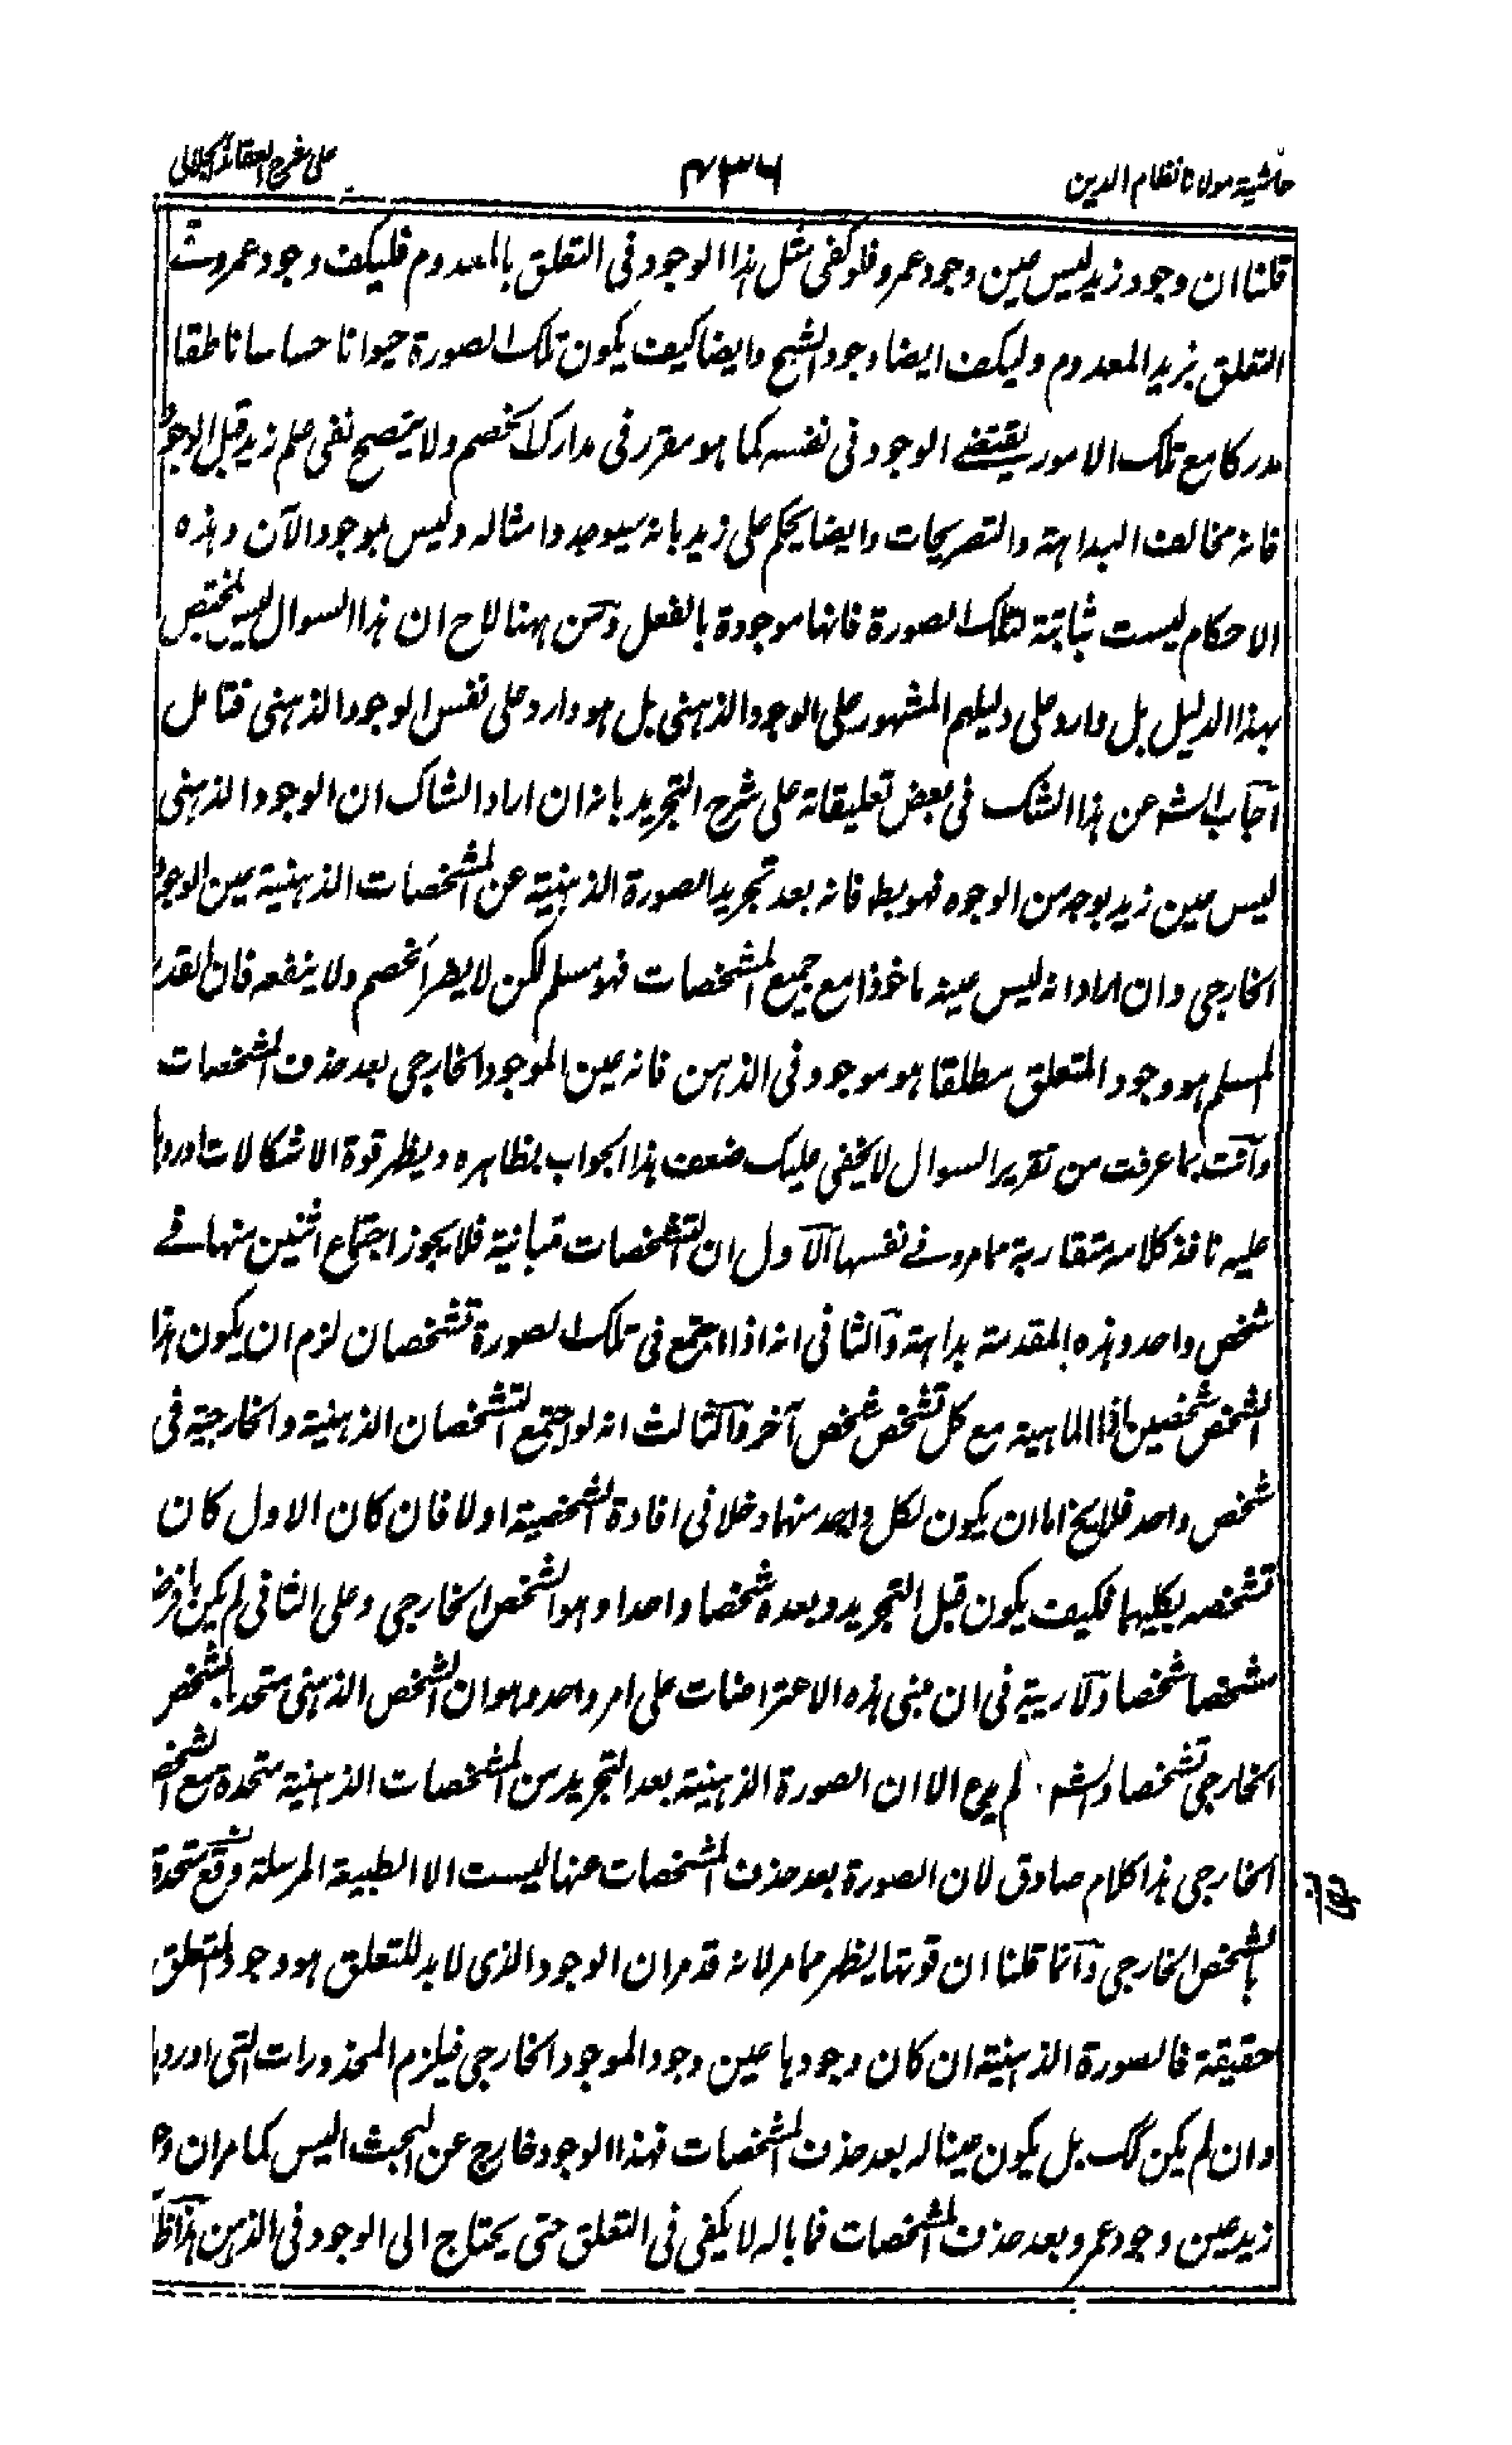 حاشية مولانا نظام الدين
۴۳۶
على شرح العقائد الجلالى
قلنا ان وجود زيد ليس عين وجود عمرو فلو كفى مثل هذا الوجود فى التعلق بالمعدوم فليكف وجود عمرو فى
التعلق بزيد المعدوم وليكف ايضا وجود الشبح وايضا كيف يكون تلك الصورة حيوانا حساسا ناطقا
مدركا مع تلك الامور يقتضے الوجود فى نفسه كما هو مقرر فى مدارك الخصم ولا يتصح نفى علم زيد قبل الوجود
فانه مخالف البداهة والتصريحات وايضا يحكم على زيد بانه سيوجد وامثاله وليس بموجود الآن وهذه
الاحكام ليست ثابتة لتلك الصورة فانها موجودة بالفعل ومن ههنا لاح ان هذا السوال ليس بمختص
بهذا الدليل بل وارد على دليلهم المشهور على الوجود الذهنى بل هو وارد على نفس الوجود الذهنى فتامل
اجاب الشه عن هذا الشك فى بعض تعليقاته على شرح التجريد بانه ان اراد الشاك ان الوجود الذهنى
ليس عين زيد بوجه من الوجوه فهو بط فانه بعد تجريد الصورة الذهنية عن المشخصات الذهنية عين الوجود
الخارجى وان اراد انه ليس عينه ماخوذا مع جميع المشخصات فهو مسلم لكن لا يضر الخصم ولا ينفعه فان القدر
المسلم هو وجود المتعلق مطلقا هو موجود فى الذهن فانه عين الموجود الخارجى بعد حذف المشخصات
وانت بما عرفت من تقرير السوال لا يخفى عليك ضعف هذا الجواب بظاهره ويظهر قوة الاشكالات اوردها
عليه ناقد كلامه متقاربة مما مر وفے نفسها الاول ان التشخصات متباينة فلا يجوز اجتماع اثنين منها فے
شخص واحد وهذه المقدمة بداهة والثانى انه اذا اجتمع فى تلك الصورة تشخصان لزم ان يكون هذا
الشخص شخصين اذا الماهية مع كل تشخص شخص آخر والثالث انه لو اجتمع التشخصان الذهنية والخارجية فى
شخص واحد فلا يخ اما ان يكون لكل واحد منهما دخلا فى افادة الشخصية او لا فان كان الاول كان
تشخصه بكليهما فكيف يكون قبل التجريد وبعده شخصا واحدا وهو الشخص الخارجى وعلى الثانى لم يكن ما فرض
مشخصا شخصا ولا ريبة فى ان مبنى هذه الاعتراضات على امر واحد وهو ان الشخص الذهنى متحد بالشخص
الخارجى تشخصا والشه لم يدع الا ان الصورة الذهنية بعد التجريد من المشخصات الذهنية متحدة مع الشخص
الخارجى هذا كلام صادق لان الصورة بعد حذف المشخصات عنها ليست الا الطبيعة المرسلة وقع متحدة
بالشخص الخارجى وانما قلنا ان قوتها يظهر مما مر لانه قد مر ان الوجود الذى لا بد للتعلق هو وجود المتعلق
حقيقة فالصورة الذهنية ان كان وجودها عين وجود الموجود الخارجى فيلزم المحذورات التى اوردها
وان لم يكن كك بل يكون عينا له بعد حذف المشخصات فهذا الوجود خارج عن البحث اليس كما مر ان وجود
زيد عين وجود عمرو بعد حذف المشخصات فما باله لا يكفى فى التعلق حتى يحتاج الى الوجود فى الذهن